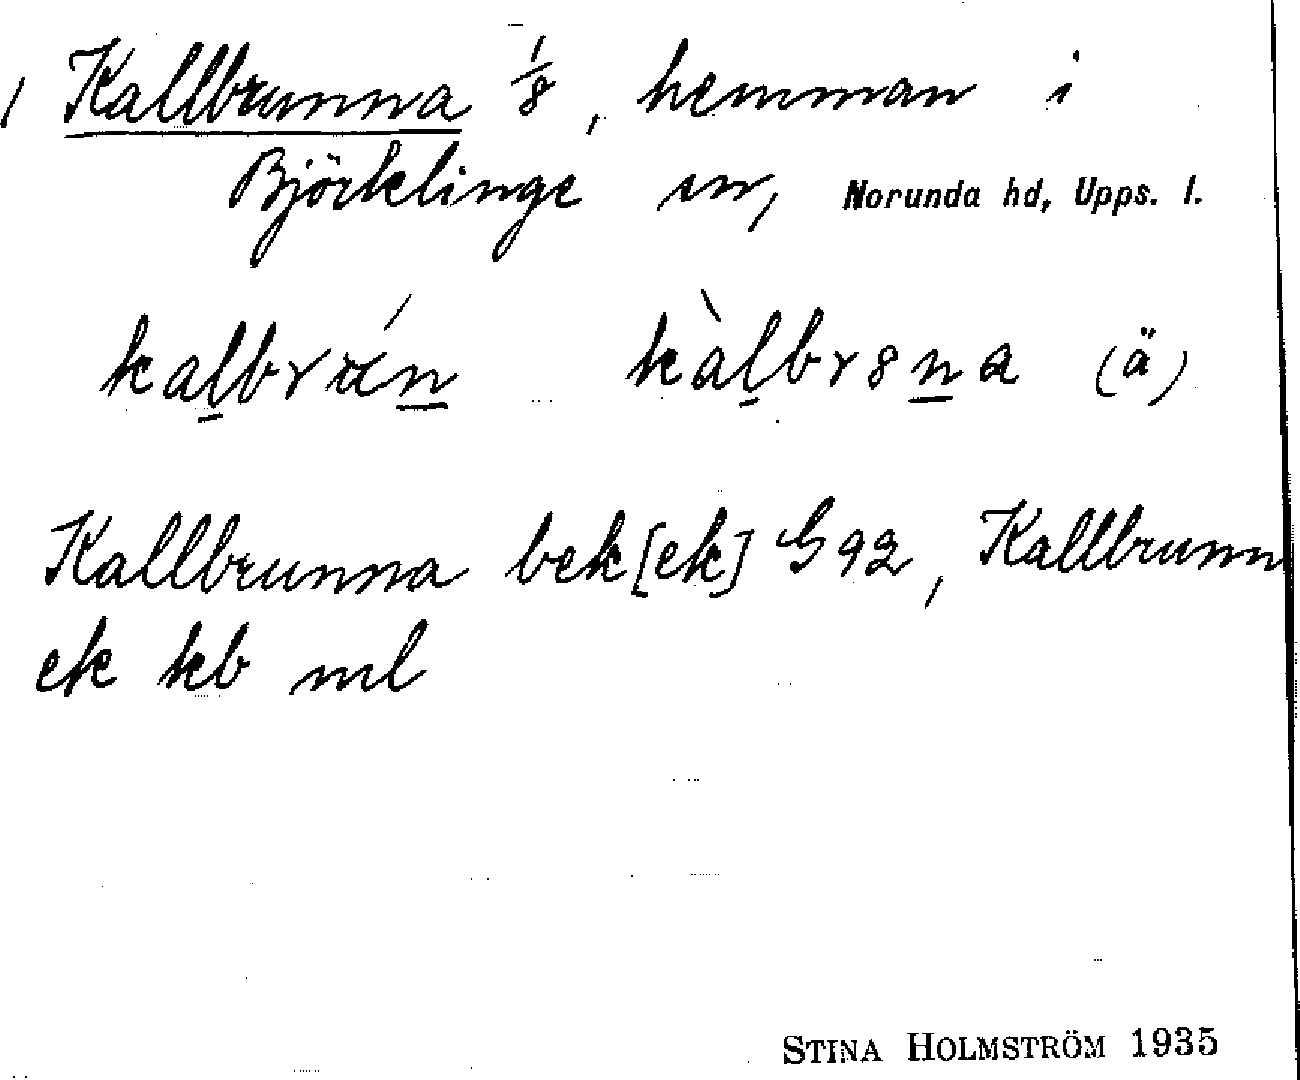 Kallbrunna 1/8, hemman i
Björklinge sn, Norunda hd, Upps. l.
(ä)
Kallbrunna bek[ek] G 92, Kallbrunn
ek kb ml
STINA HOLMSTRÖM 1935